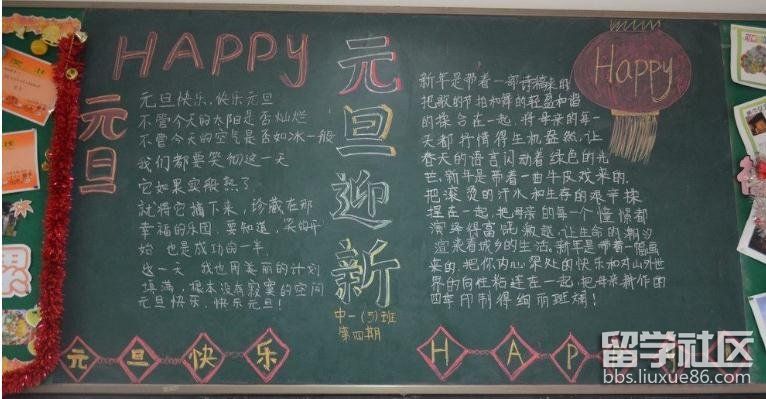 HAPPY
元旦
元旦快乐,快乐元旦
不管今天的太阳是否灿烂
不管今天的空气是否如冰一般
我们都要笑彻这一天
它如果实般熟了
就将它摘下来,珍藏在那
幸福的乐园,要知道,笑的开
始 也是成功的一半
这一天 我也用美丽的计划
填满,根本没有寂寞的空间
元旦快乐,快乐元旦!
元旦迎新
中一(5)班
第四期
Happy
新年是带着一部诗稿来的
把歌的节拍和舞的轻盈和谐
的揉合在一起,将母亲的每一
天都抒情得生机盎然,让
春天的语言闪动着绿色的光
芒,新年是带着一曲牛皮戏来的,
把滚烫的汗水和生存的艰辛揉
捏在一起,把母亲的每一个憧憬都
演奏得高亢激越,让生命的潮汐
渲染着城乡的生活,新年是带着一幅画
来的,把你内心深处的快乐和对山外世
界的向往粘连在一起,把母亲新作的
四季印制得绚丽斑斓!
元旦快乐
H A P
留学社区
bbs.liuxue86.com